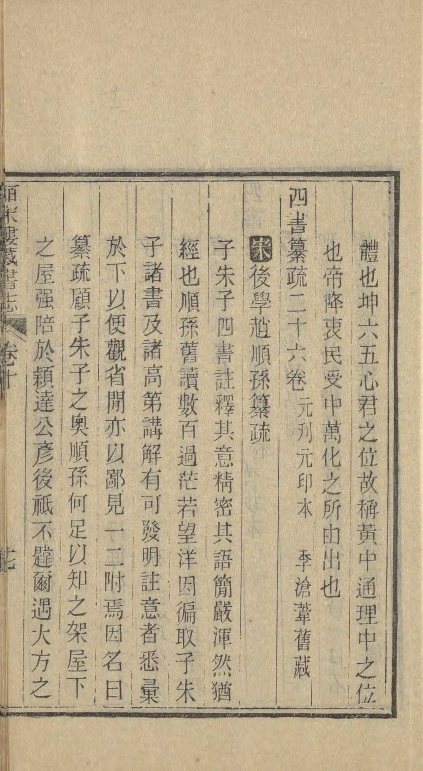 體也坤六五心君之位故稱黃中通理中之位
也帝降衷民受中萬化之所由出也
四書纂疏二十六卷 元刋元印本 季滄葦舊藏
宋後學趙順孫纂疏
子朱子四書註釋其意精密其語簡嚴渾然猶
經也順孫舊讀數百過茫若望洋因徧取子朱
子諸書及諸高第講解有可發明註意者悉彙
於下以便觀省閒亦以鄙見一二附焉因名曰
纂疏顧子朱子之奧順孫何足以知之架屋下
之屋强陪於穎達公彥後祗不韙爾遇大方之
皕宋樓藏書志 卷十